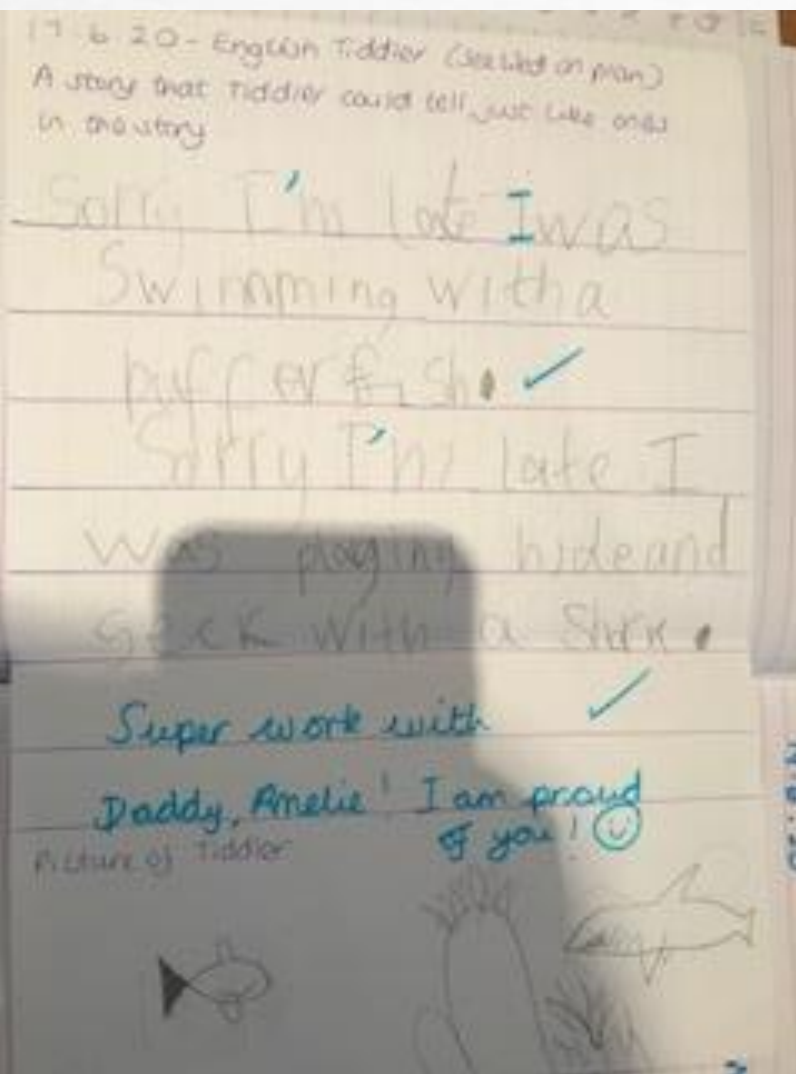 17.6.20 - English Tiddler (see on plan)
A story that Tiddler could tell just like ones
in the story
Sorry I'm late I was
Swimming with a
puffer fish.
Sorry I'm late I
was playing hide and
seek with a Shark.
Super work with
Daddy, Amelie! I am proud
of you!
Picture of Tiddler